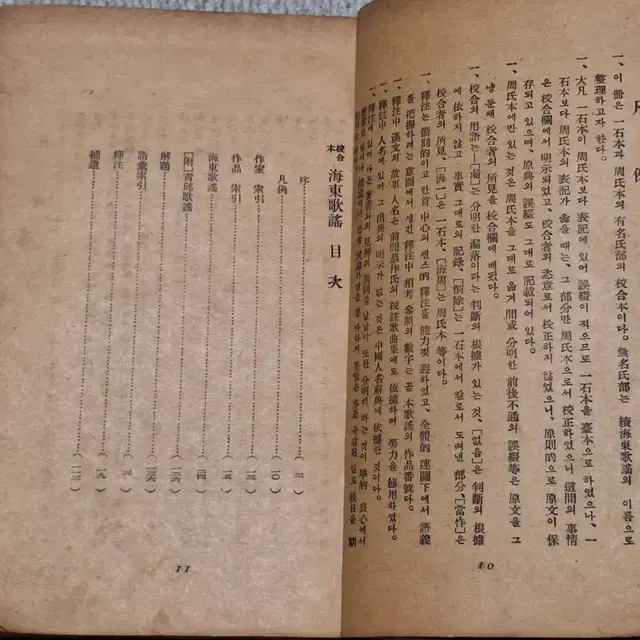 凡例
一、이 册은 一石本과 周氏本의 有名氏部의 校合本이다. 無名氏部는 續海東歌謠의 이름으로
整理하고자 한다.
一、大凡 一石本이 周氏本보다 表記에 있어 誤綴이 적으므로 一石本을 臺本으로 하였으나、一
石本보다 周氏本의 表記가 옳을 때는、그 部分만 周氏本으로서 校正하였으니 這間의 事情
은 校合欄에서 明示되었고、校合者의 恣意로서 校正하지 않었으니、原則的으로 原文이 保
存되고 있으며、原典의 誤綴도 그대로 記載되어 있다.
一、周氏本에만 있는 것은 周氏本을 그대로 옮겨 間或 分明한 前後不通의 誤綴等은 原文을 그
냥 둔채 校合者의 所見을 校合欄에 베폈다.
一、校合의 用語는—[漏]는 分明한 漏落이라는 判斷의 根據가 있는 것、[없음]은 判斷의 根據
에 依하지 않고 事實 그대로의 記錄、[削除]는 一石本에서 칼로서 도려낸 部分、[當作]은
校合者의 所見、[海一]은 一石本、[海周]는 周氏本 等이다.
一、釋注는 箇別的이고 한首 中心의 센스的 釋注를 能力껏 避하였고、全體的 連關下에서 語義
를 把握하려는 意圖에서 생긴 釋注中 相考 參照의 數字는 곧 本歌謠의 作品番號다.
一、釋注中 漢文의 故事 人名은 前間恭作氏의 校註歌曲集에도 依據하여 努力을 節用하였다.
一、釋註中 人名에 있어 그 出典의 明示가 없는 것은 中國人名辭典에 依據한 것이다.
10
校合本 海東歌謠 目次
序……(三)
凡例……(一〇)
作家 索引
作品 索引
海東歌謠
[附]靑邱歌謠
解題
語彙索引
釋注
補遺
11